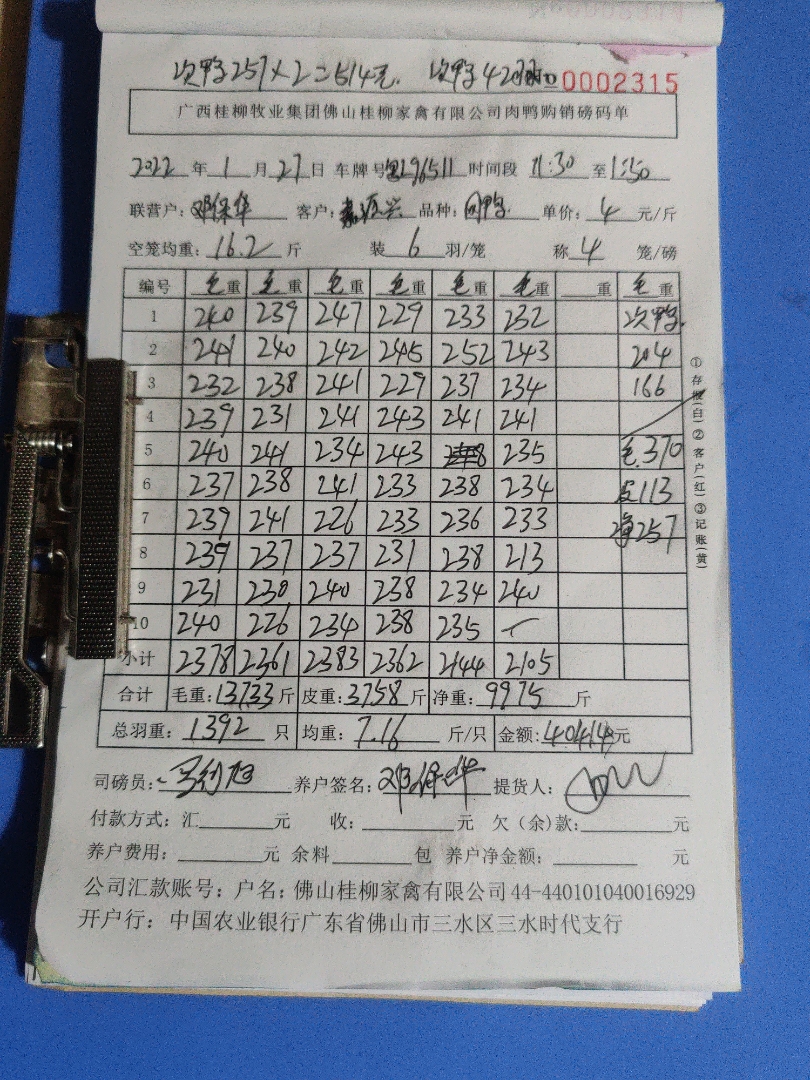 次鸭257×2=514元. 次鸭42 0002315
广西桂柳牧业集团佛山桂柳家禽有限公司肉鸭购销磅码单
2022年1月27日 车牌号 96511 时间段 11:30 至1:50
联营户:邓保华 客户: 兴 品种:肉鸭 单价:4元/斤
空笼均重:16.2斤 装6羽/笼 称4笼/磅
编号 毛重 毛重 毛重 毛重 毛重 毛重 重 毛重
1 240 239 247 229 233 232 次鸭.
2 241 240 242 245 252 243 204
3 232 238 241 229 237 234 166
4 239 231 241 243 241 241
5 240 241 234 243 235 毛370
6 237 238 241 233 238 234 皮113
7 239 241 226 233 236 233 净257
8 239 237 237 231 238 213
9 231 230 240 238 234 240
10 240 226 234 238 235
小计 2378 2361 2383 2362 2144 2105
合计 毛重:13733斤 皮重:3758斤 净重:9975斤
总羽重:1392只 均重:7.16斤/只 金额:40414元
司磅员: 养户签名:邓保华 提货人:
付款方式:汇 元 收: 元 欠(余)款: 元
养户费用: 元 余料 包 养户净金额: 元
公司汇款账号:户名:佛山桂柳家禽有限公司44-440101040016929
开户行:中国农业银行广东省佛山市三水区三水时代支行
①存根(白)②客户(红)③记账(黄)